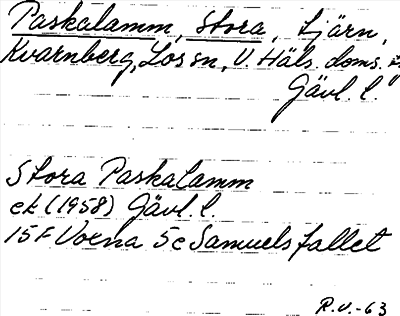 Paskalamm, Stora, tjärn,
Kvarnberg, Los sn, V. Häls. doms.
Gävl. l.
Stora Paskalamm
ek (1958) Gävl. l.
15F Voxna 5c Samuelsfallet
R.V.-63